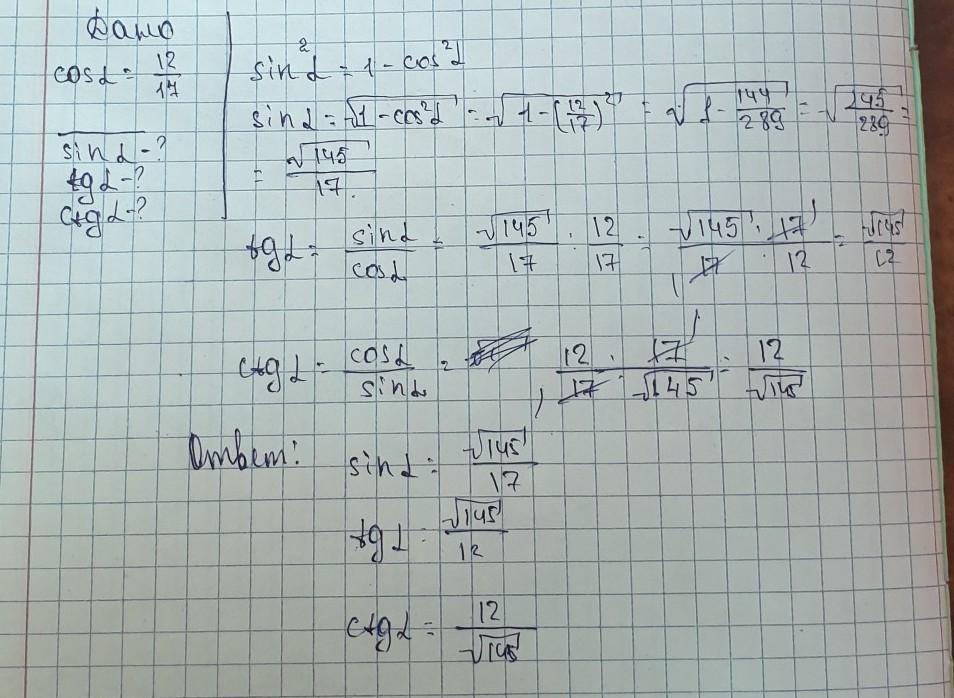 Дано
cosα = 12/17
sinα - ?
tgα - ?
ctgα - ?
sin²α = 1 - cos²α
sinα = √(1 - cos²α) = √(1 - (12/17)²) = √(1 - 144/289) = √(145/289) =
= √145/17.
tgα = sinα/cosα = √145/17 : 12/17 = √145 · 17/17 · 12 = √145/12
ctgα = cosα/sinα = 12 · 17/17 · √145 = 12/√145
Ответ: sinα = √145/17
tgα = √145/12
ctgα = 12/√145